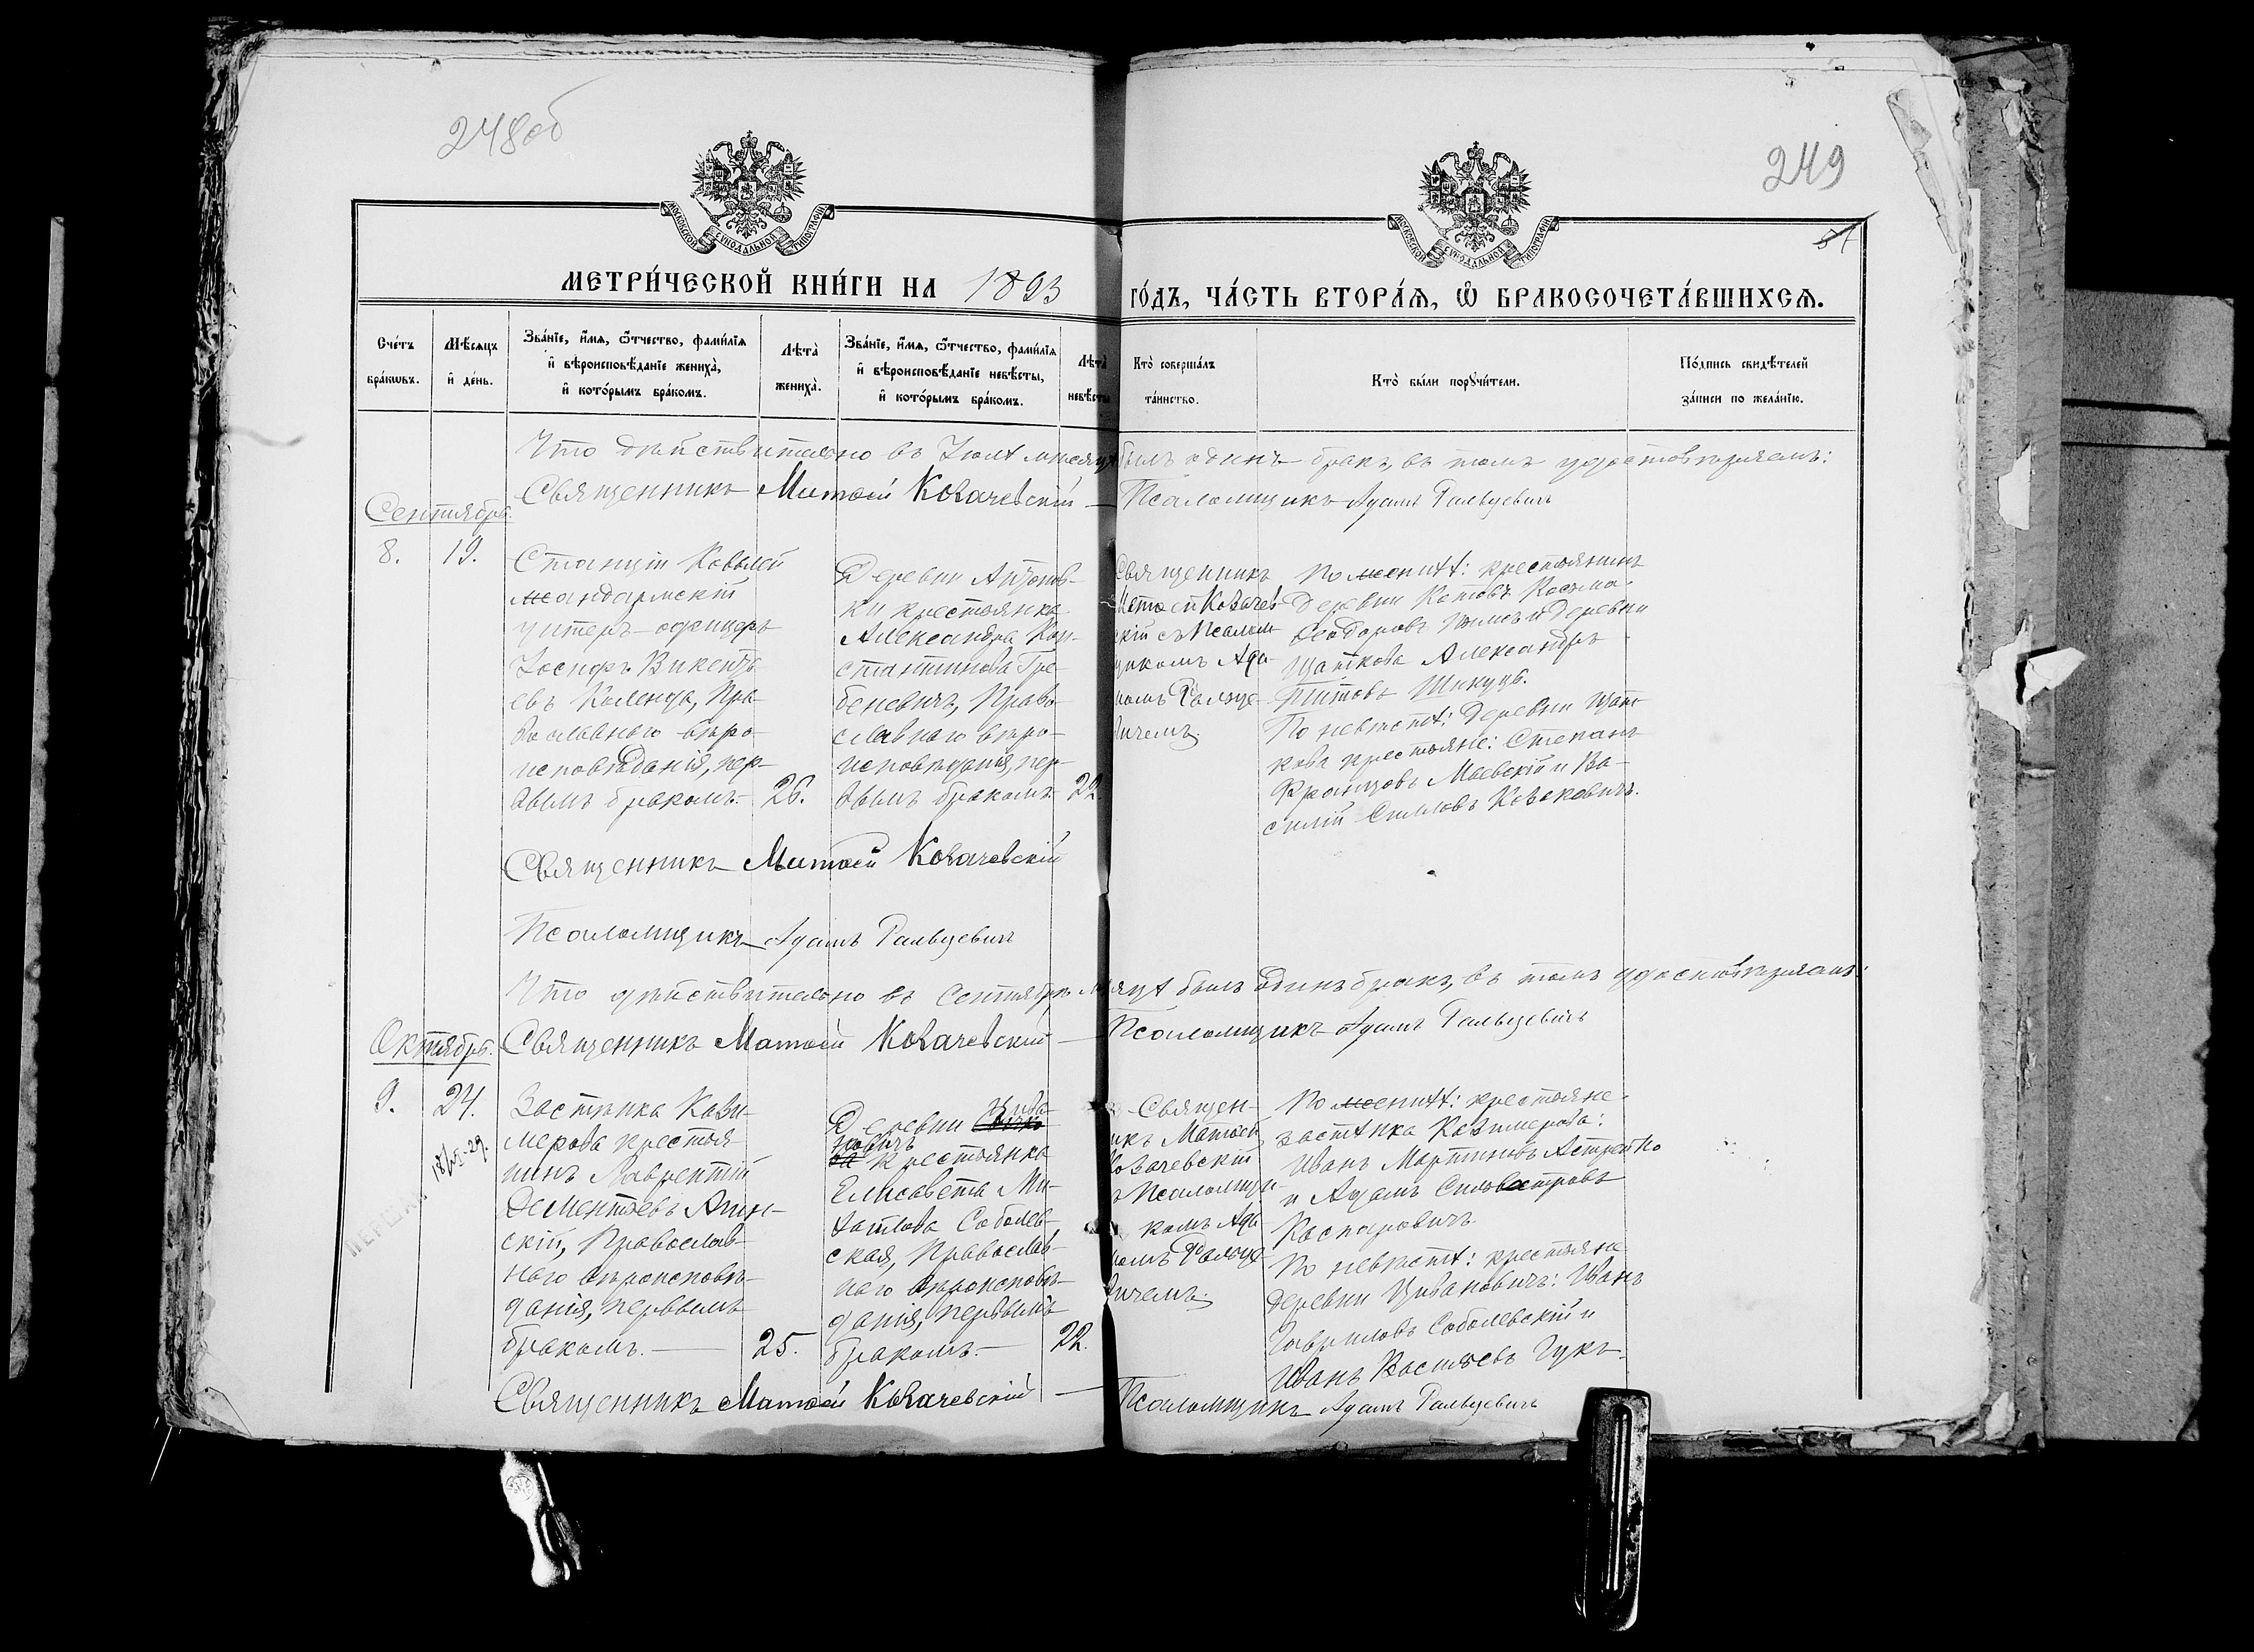 248об
249
51
МОСКОВСКОЙ СУНОДАЛЬНОЙ ТИПОГРАФІИ
МОСКОВСКОЙ СУНОДАЛЬНОЙ ТИПОГРАФІИ
МЕТРИ́ЧЕСКОЙ КНИ́ГИ НА 1893 ГО́ДЪ, ЧА́СТЬ ВТОРА́Я, Ѡ БРАКОСОЧЕТА́ВШИХСЯ.
Сче́тъ бра́кѡвъ.
Мѣ́сяцъ и де́нь.
Зва́нїе, и́мя, ѻ́тчество, фами́лїя и вѣроисповѣ́данїе жениха̀, и кото́рымъ бра́комъ.
Лѣта̀ жениха̀.
Зва́нїе, и́мя, ѻ́тчество, фами́лїя и вѣроисповѣ́данїе невѣ́сты, и кото́рымъ бра́комъ.
Лѣта̀ невѣ́сты
Кто̀ соверша́лъ та́инство.
Кто̀ бы́ли порꙋчи́тели.
По́дпись свидѣ́телей за́писи по жела́нїю.
Что дѣйствительно въ Іюлѣ мѣсяцѣ былъ одинъ бракъ, въ томъ удостовѣряемъ:
Священникъ Матѳей Ковачевскій — Псаломщикъ Адамъ Гальцевичъ
Сентябрь.
8.
19.
Станціи Ковылей
жандармскій
унтеръ-офицеръ
Іосифъ Викенть
евъ Календа, Пра-
вославнаго вѣро-
исповѣданія, пер-
вымъ бракомъ.
26.
Деревни Антонов-
ки крестьянка
Александра Кон-
стантинова Гре-
беневичъ, Право-
славнаго вѣро-
исповѣданія, пер-
вымъ бракомъ.
22.
Священникъ
Матѳей Ковачев-
скій съ Псалом-
щикомъ Ада-
момъ Гальце-
вичемъ.
По женихѣ: крестьянинъ
Деревни Котовъ Косьма
Ѳеодоровъ и деревни
Щаткова Александръ
Титовъ Шикуць.
По невѣстѣ: Деревни Щат-
кова крестьяне: Степанъ
Францовъ Маевскій и Ва-
силій Силловъ Козаковичъ.
Священникъ Матѳей Ковачевскій
Псаломщикъ Адамъ Гальцевичъ
Что дѣйствительно въ Сентябрѣ мѣсяцѣ былъ одинъ бракъ, въ томъ удостовѣряемъ:
Октябрь.
Священникъ Матѳей Ковачевскій — Псаломщикъ Адамъ Гальцевичъ
9.
24.
Застѣнка Кази-
мерова крестья-
нинъ Лаврентій
Дементьевъ Агин-
скій, Православ-
наго вѣроисповѣ-
данія, первымъ
бракомъ. —
25.
Деревни Цива-
новичъ
крестьянка
Елисавета Ми-
хаилова Соболев-
ская, Православ-
наго вѣроисповѣ-
данія, первымъ
бракомъ. —
22.
Священ-
никъ Матѳей
Ковачевскій
съ Псаломщи-
комъ Ада-
момъ Гальце-
вичемъ.
По женихѣ: крестьяне
застѣнка Казимерова:
Иванъ Мартиновъ Астрейко
и Адамъ Сильвестровъ
Каспаровичъ.
По невѣстѣ: крестьяне
деревни Цивановичъ: Иванъ
Гавриловъ Соболевскій и
Иванъ Васильевъ Гукъ.
Священникъ Матѳей Ковачевскій — Псаломщикъ Адамъ Гальцевичъ